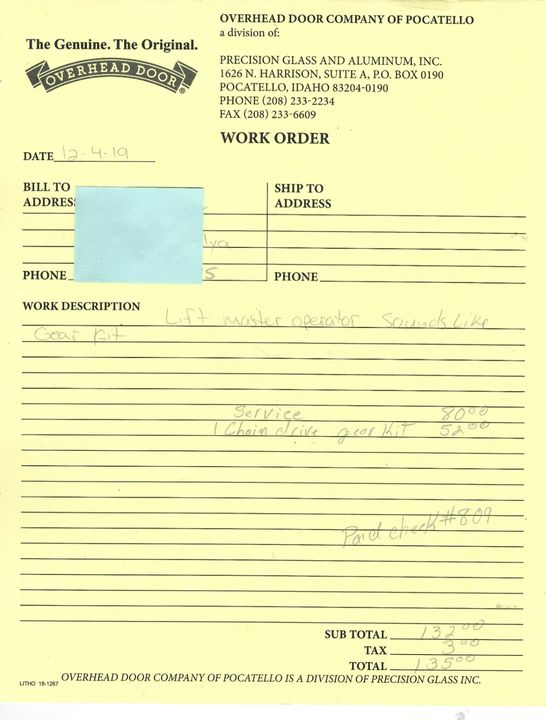 OVERHEAD DOOR COMPANY OF POCATELLO
a division of:
The Genuine. The Original.
OVERHEAD DOOR
PRECISION GLASS AND ALUMINUM, INC.
1626 N. HARRISON, SUITE A, P.O. BOX 0190
POCATELLO, IDAHO 83204-0190
PHONE (208) 233-2234
FAX (208) 233-6609
WORK ORDER
DATE 12-4-19
BILL TO
ADDRESS
SHIP TO
ADDRESS
PHONE 5
PHONE
WORK DESCRIPTION
Lift master operator Sounds Like
Gear Kit
Service 80.00
1 Chain drive gear Kit 52.00
Paid check #809
SUB TOTAL 132.00
TAX 3.00
TOTAL 135.00
OVERHEAD DOOR COMPANY OF POCATELLO IS A DIVISION OF PRECISION GLASS INC.
LITHO 18-1267